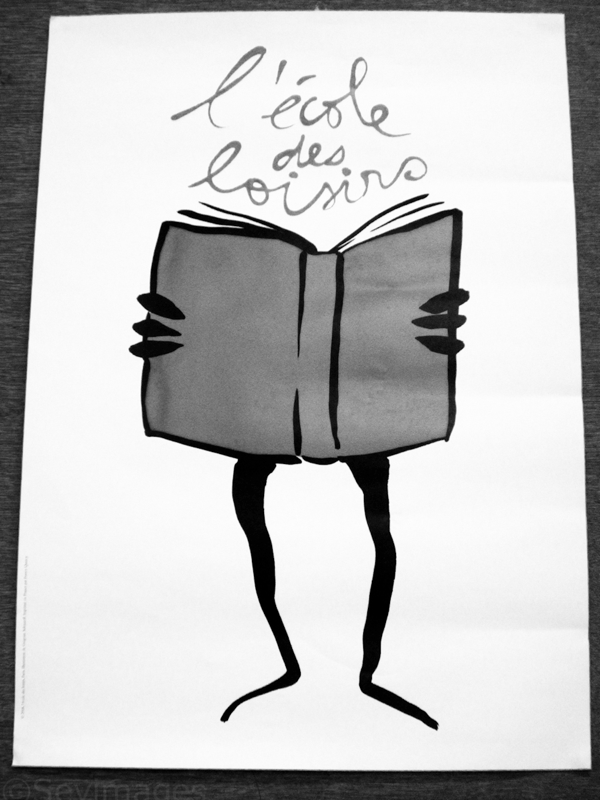 l'école
des
loisirs
©SevImages